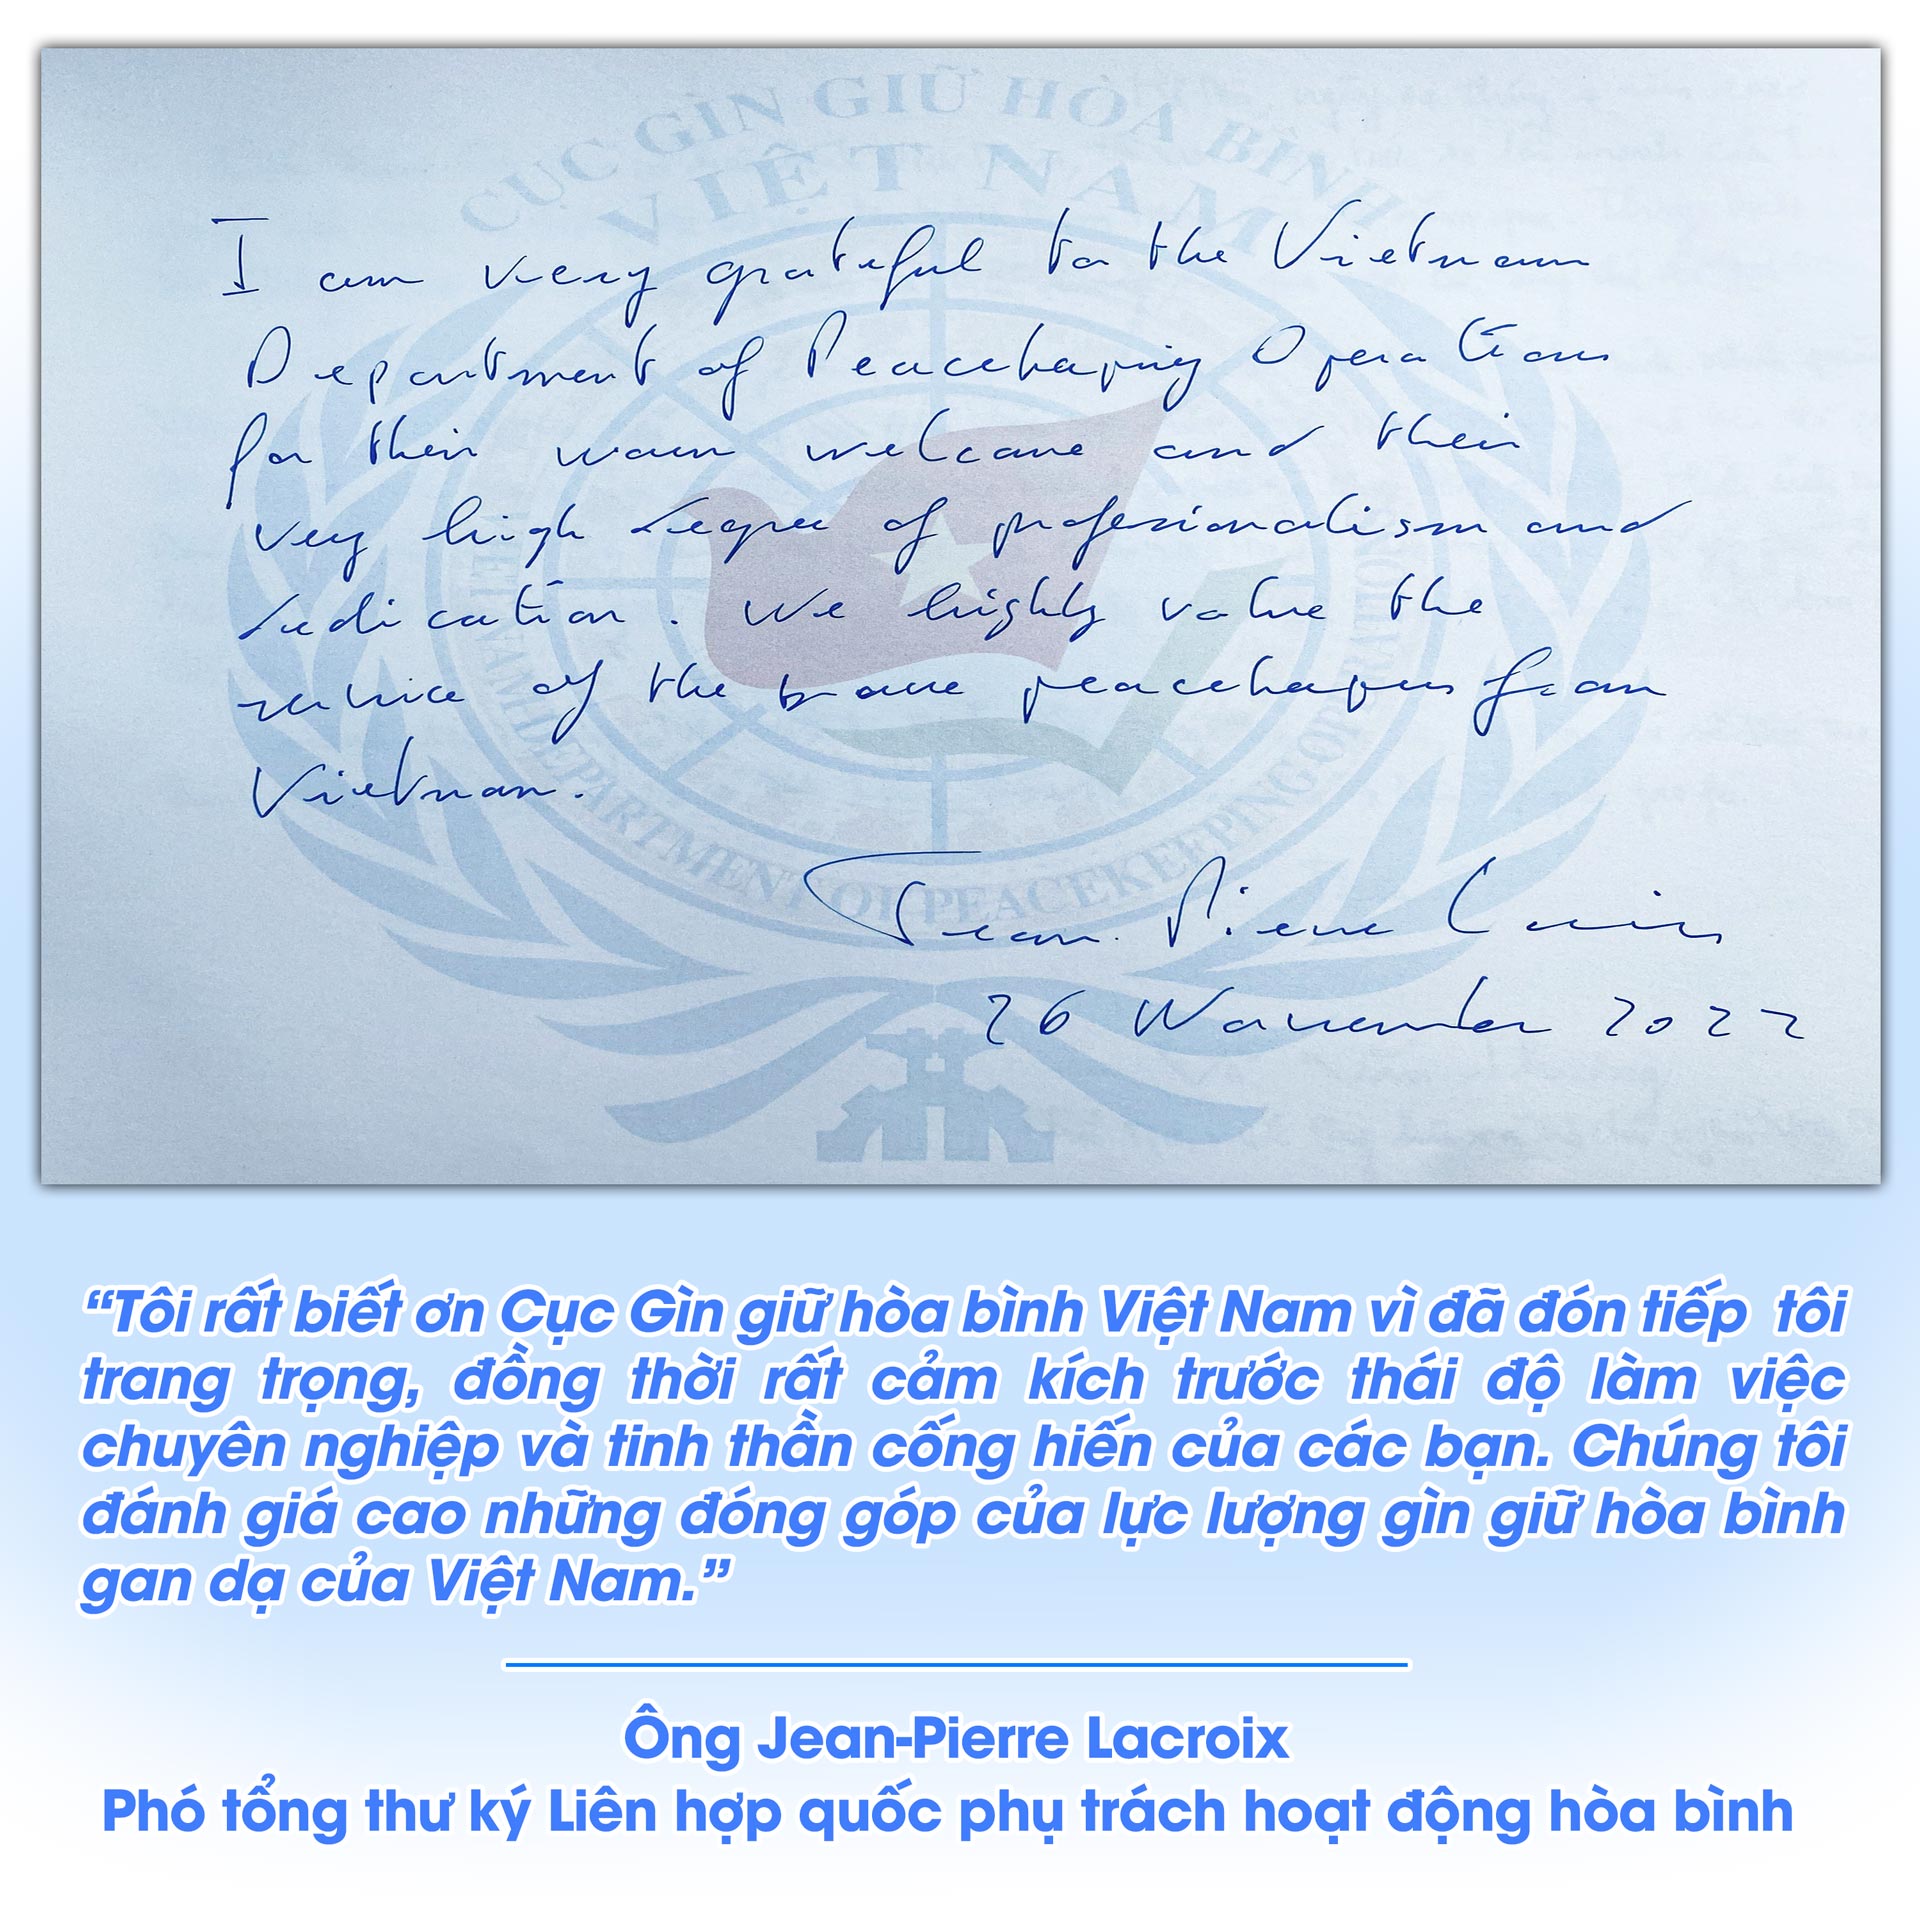 CỤC GÌN GIỮ HÒA BÌNH
VIỆT NAM
I am very grateful to the Vietnam
Department of Peacekeeping Operations
for their warm welcome and their
very high degree of professionalism and
dedication. We highly value the
service of the brave peacekeepers from
Vietnam.
VIETNAM DEPARTMENT OF PEACEKEEPING OPERATIONS
Jean-Pierre Lacroix
26 November 2022
“Tôi rất biết ơn Cục Gìn giữ hòa bình Việt Nam vì đã đón tiếp tôi
trang trọng, đồng thời rất cảm kích trước thái độ làm việc
chuyên nghiệp và tinh thần cống hiến của các bạn. Chúng tôi
đánh giá cao những đóng góp của lực lượng gìn giữ hòa bình
gan dạ của Việt Nam.”
Ông Jean-Pierre Lacroix
Phó tổng thư ký Liên hợp quốc phụ trách hoạt động hòa bình